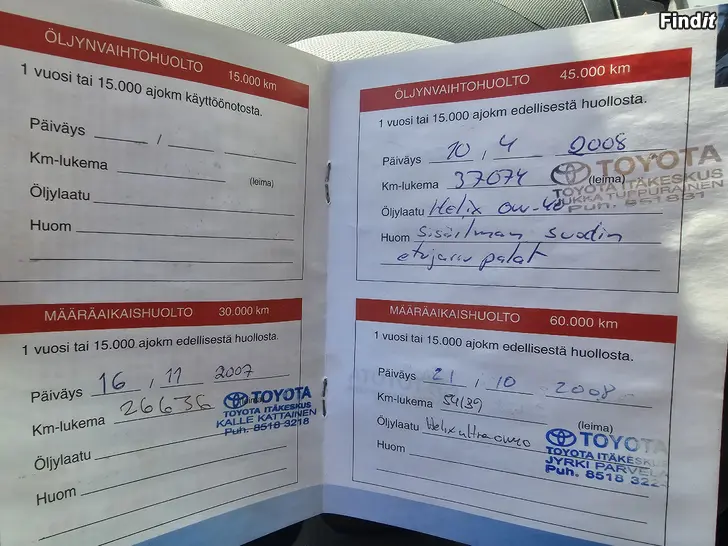 Findit
ÖLJYNVAIHTOHUOLTO 15.000 km
1 vuosi tai 15.000 ajokm käyttöönotosta.
Päiväys / 
Km-lukema
(leima)
Öljylaatu
Huom
MÄÄRÄAIKAISHUOLTO 30.000 km
1 vuosi tai 15.000 ajokm edellisestä huollosta.
Päiväys 16 / 11 2007
Km-lukema 26636
TOYOTA
TOYOTA ITÄKESKUS
KALLE KATTAINEN
Puh. 8518 3218
Öljylaatu
Huom
ÖLJYNVAIHTOHUOLTO 45.000 km
1 vuosi tai 15.000 ajokm edellisestä huollosta.
Päiväys 10 / 4 2008
Km-lukema 37074 (leima)
TOYOTA
TOYOTA ITÄKESKUS
JUKKA TUPPURAINEN
Puh. 8518 31
Öljylaatu Helix 0w-40
Huom Sisäilman suodin
etujarru palat
MÄÄRÄAIKAISHUOLTO 60.000 km
1 vuosi tai 15.000 ajokm edellisestä huollosta.
Päiväys 21 / 10 2008
Km-lukema 54139
(leima)
Öljylaatu Helix ultra 0w40
TOYOTA
TOYOTA ITÄKESKU
JYRKI PARVEL
Puh. 8518 322
Huom